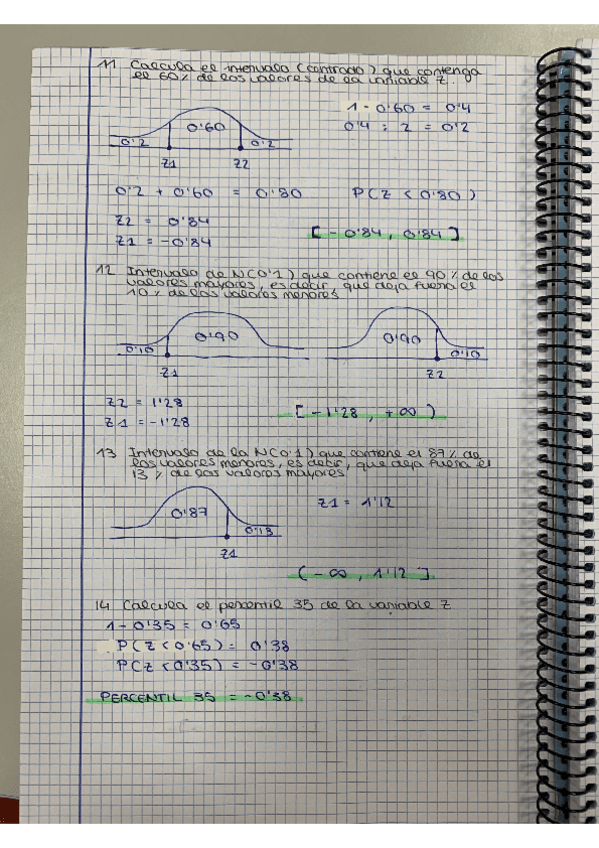 11 Calcula el intervalo (centrado) que contenga
el 60% de los valores de la variable Z.
1 - 0'60 = 0'4
0'60
0'4 : 2 = 0'2
0'2
0'2
Z1
Z2
0'2 + 0'60 = 0'80
P(Z < 0'80)
Z2 = 0'84
Z1 = -0'84
[-0'84, 0'84]
12 Intervalo de N(0'1) que contiene el 90% de los
valores mayores, es decir, que deja fuera el
10% de los valores menores
0'90
0'90
0'10
0'10
Z1
Z2
Z2 = 1'28
Z1 = -1'28
[-1'28, +∞)
13 Intervalo de la N(0'1) que contiene el 87% de
los valores menores, es decir, que deja fuera el
13% de los valores mayores
Z1 = 1'12
0'87
0'13
Z1
(-∞, 1'12]
14 Calcula el percentil 35 de la variable Z
1 - 0'35 = 0'65
P(Z < 0'65) = 0'38
P(Z < 0'35) = -0'38
PERCENTIL 35 = -0'38